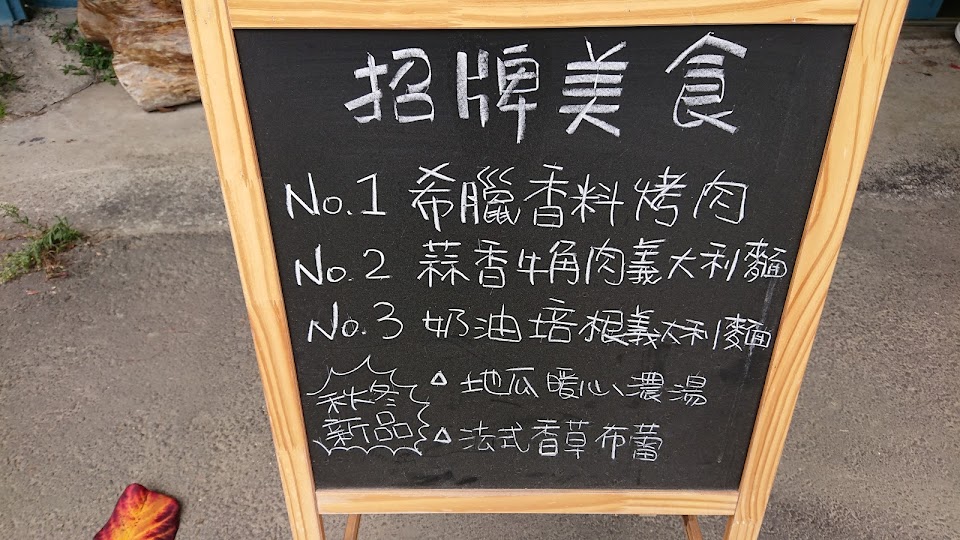 招牌美食
No.1 希臘香料烤肉
No.2 蒜香牛角肉義大利麵
No.3 奶油培根義大利麵
秋冬
新品
△ 地瓜暖心濃湯
△ 法式香草布蕾